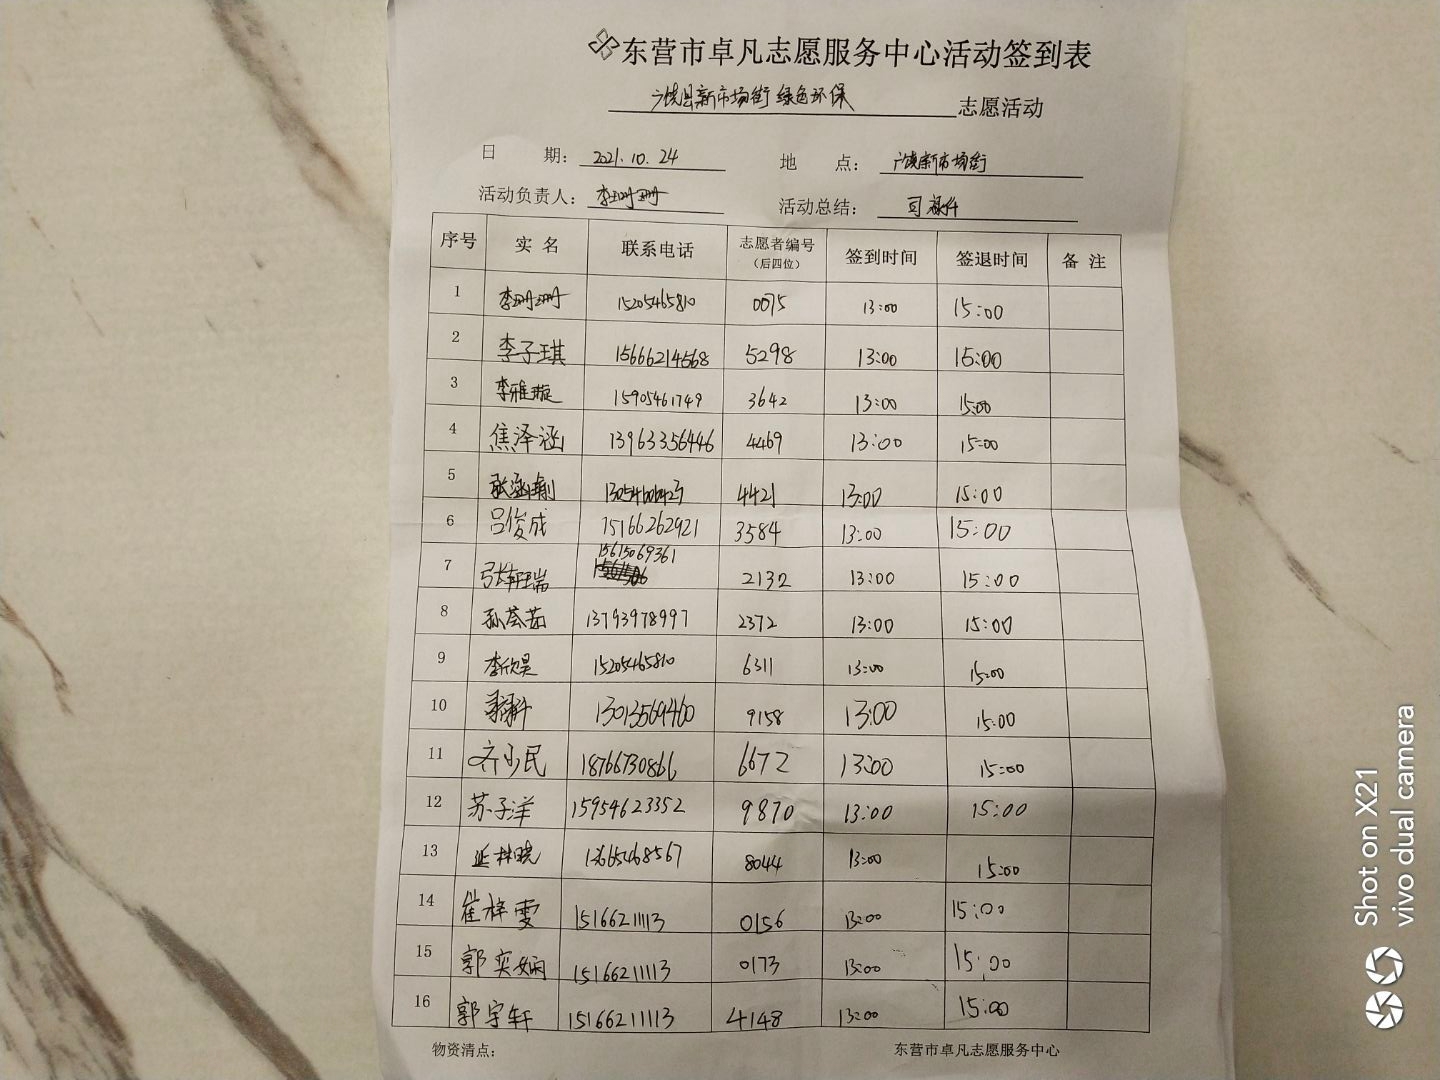 东营市卓凡志愿服务中心活动签到表
广饶县新市场街 绿色环保 志愿活动
日 期: 2021.10.24 地 点: 广饶新市场街
活动负责人: 李珊珊 活动总结: 司禄仟
序号 实 名 联系电话 志愿者编号 (后四位) 签到时间 签退时间 备 注
1 李珊珊 15205465810 0075 13:00 15:00
2 李子琪 15666214568 5298 13:00 15:00
3 李雅璇 15905461749 3642 13:00 15:00
4 焦泽涵 13963356446 4469 13:00 15:00
5 4421 13:00 15:00
6 吕俊成 15166262921 3584 13:00 15:00
7 张轩瑞 15615069361 2132 13:00 15:00
8 孙荟茹 13793978997 2372 13:00 15:00
9 李欣昊 15205465810 6311 13:00 15:00
10 13013569460 9158 13:00 15:00
11 齐少民 18766730866 6672 13:00 15:00
12 苏子洋 15954623352 9870 13:00 15:00
13 延林晓 13665468567 8044 13:00 15:00
14 崔梓雯 15166211113 0156 13:00 15:00
15 郭奕炳 15166211113 0173 13:00 15:00
16 郭宇轩 15166211113 4148 13:00 15:00
物资清点: 东营市卓凡志愿服务中心
Shot on X21
vivo dual camera